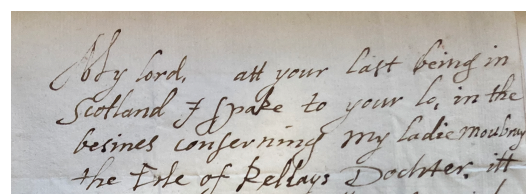 My lord, att your last being in
Scotland I spake to your lo, in the
besines conserning my ladie moubray
the Erle of Kellays Dochter. itt